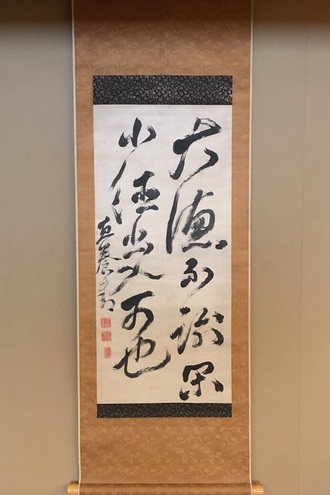 大德不踰閑
小德出入可也
直養